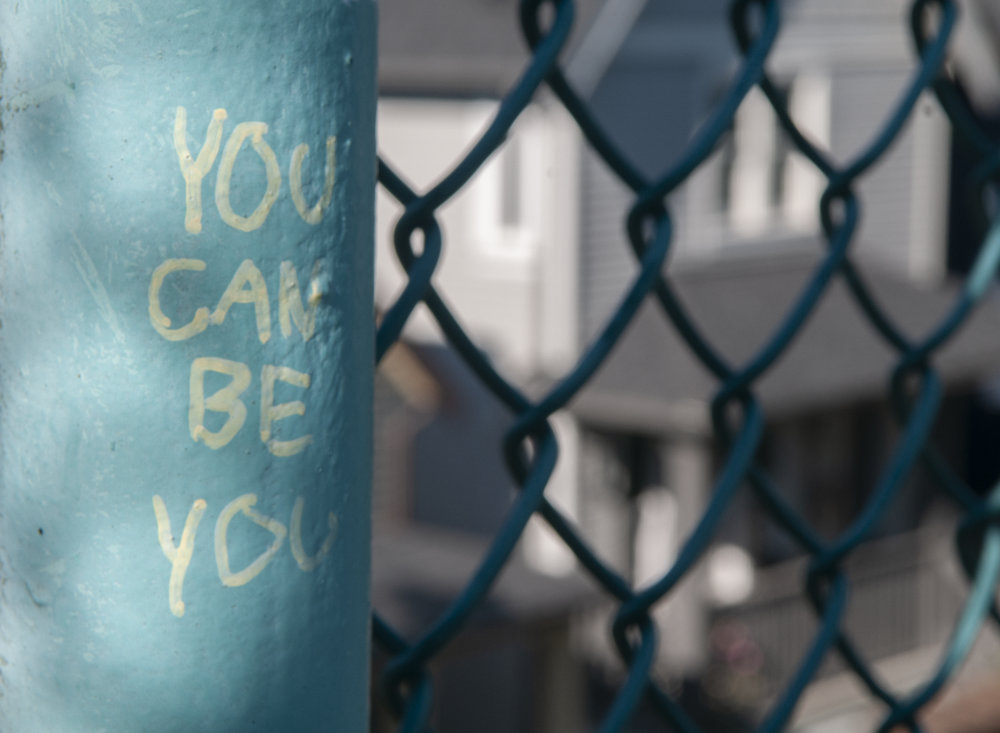 YOU
CAN
BE
YOU